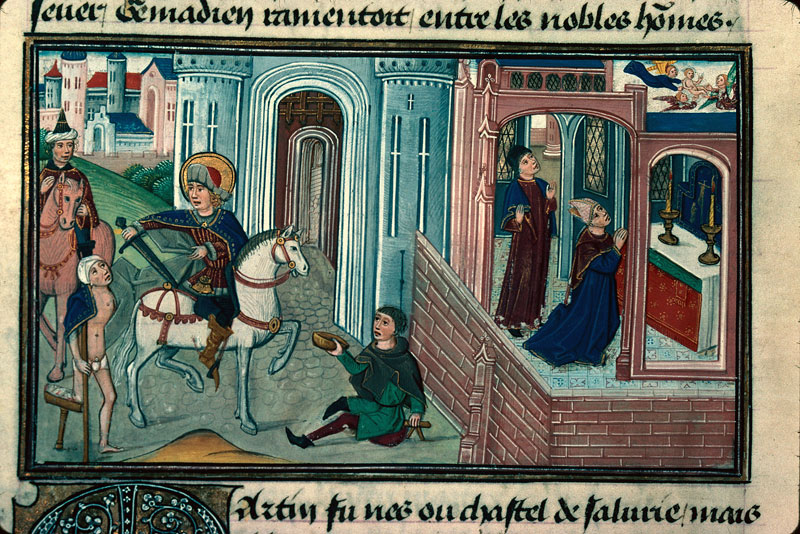 seuer, Gemadien ramentoit, entre les nobles hõmes.
Artin fu nes ou chastel de salurie, mais